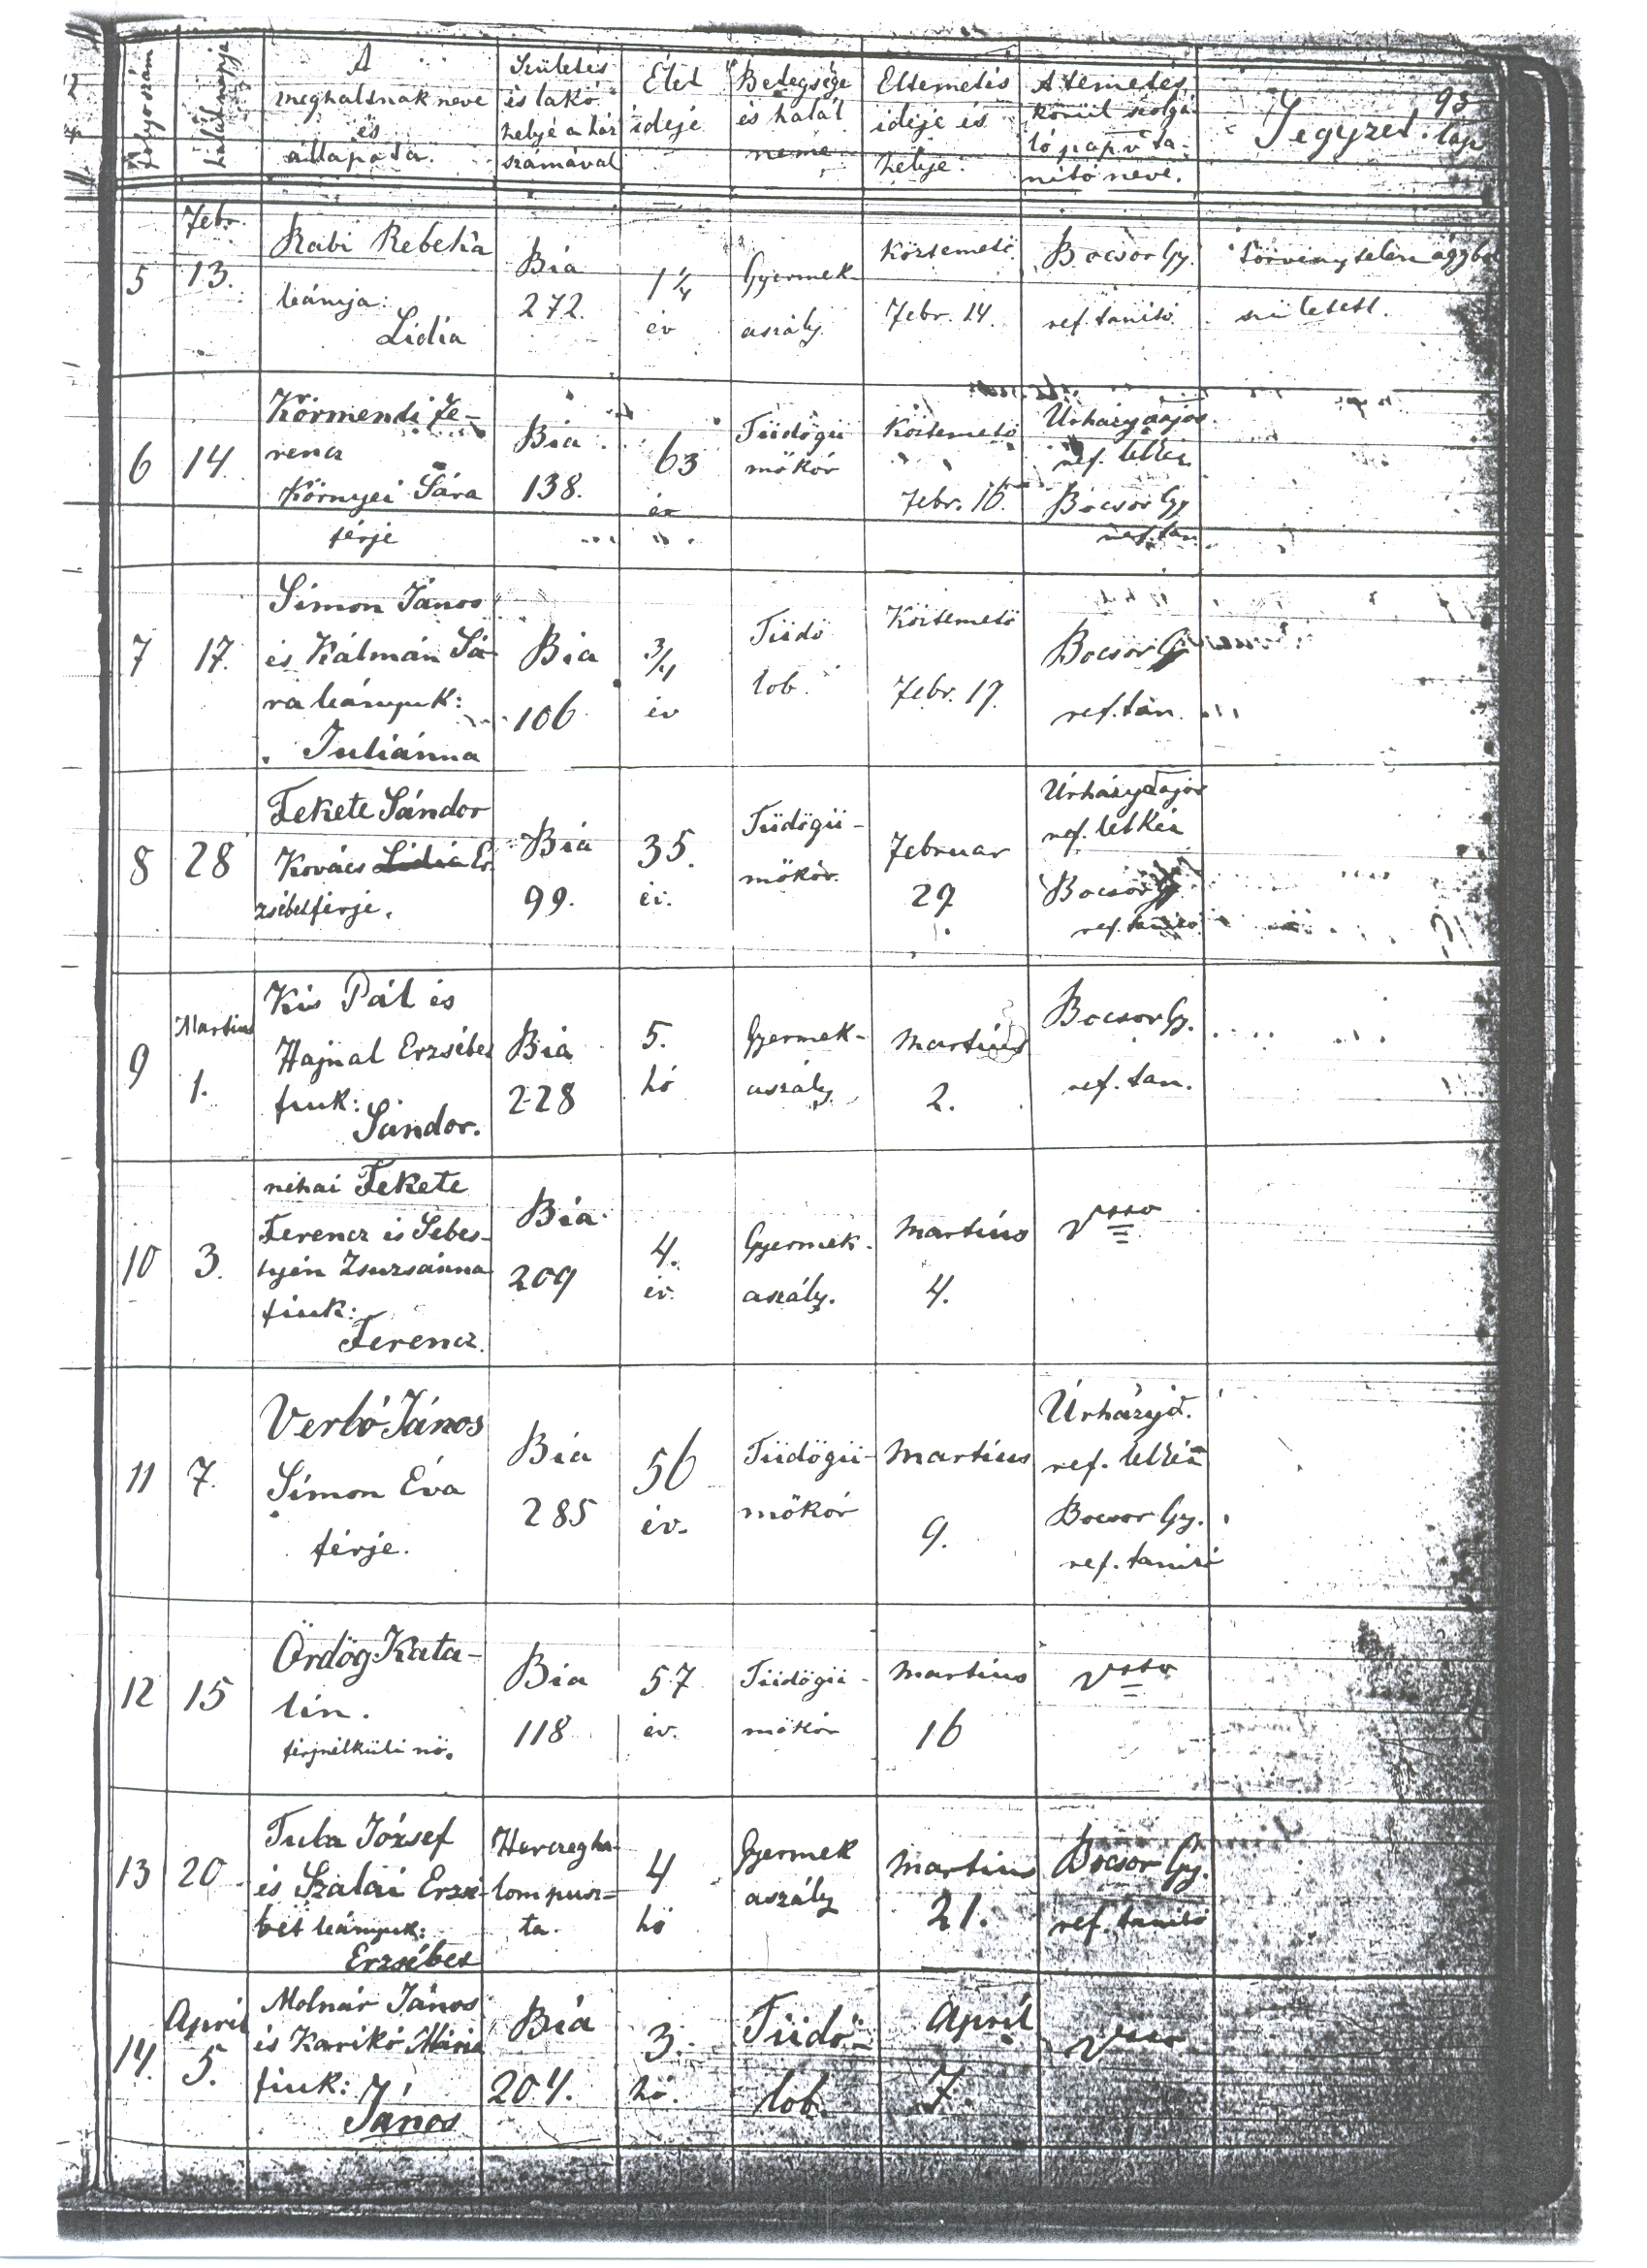 folyószám
halálnapja
A
meghaltnak neve
és
állapota.
Születés
és lakó
helye a ház
számával
Élet
ideje
Betegsége
és halál
neme
Eltemetés
ideje és
helye.
A temetés
körül szolgá-
ló pap v. ta-
nító neve.
Jegyzet.
93
lap
5
Febr.
13.
Rabi Rebeka
leánya:
Lidia
Bia
272.
1 1/4
év
Gyermek
aszály.
Köztemető.
Febr. 14.
Bocsor Gy.
ref. tanító.
törvénytelen ágyból
született.
6
14.
Körmendi Fe-
rencz
Környei Sára
férje
Bia
138.
63
év
Tüdőgü
mőkór
Köztemető
Febr. 16.
Úrházy Lajos
ref. lelkész
Bocsor Gy
ref. tan.
7
17.
Simon János
és Kálmán Sá-
ra leányuk:
Juliánna
Bia
106
3/4
év
Tüdő
lob.
Köztemető
Febr. 19.
Bocsor Gy
ref. tan.
8
28
Fekete Sándor
Kovács Lidia Er-
zsébet férje.
Bia
99.
35.
év.
Tüdőgü-
mőkór.
Februar
29
Úrházy Lajos
ref. lelkész
Bocsor Gy.
ref. tanító
9
Martius
1.
Kis Pál és
Hajnal Erzsébet
fiuk:
Sándor.
Bia
228
5.
hó
Gyermek-
aszály
Martius
2.
Bocsor Gy.
ref. tan.
10
3.
néhai Fekete
Ferencz és Sebes-
tyén Zsuzsánna
fiuk:
Ferencz.
Bia
209
4.
év.
Gyermek-
aszály.
Martius
4.
11
7.
Verbó János
Simon Éva
férje.
Bia
285
56
év.
Tüdőgü-
mőkór
Martius
9.
ref. lelkész
Bocsor Gy.
ref. tanító
12
15
Ördög Kata-
lin.
férjnélküli nő.
Bia
118
57
év.
Tüdőgü-
mőkór
Martius
16
13
20
Tuba József
és Szalai Erzsé-
bet leányuk:
Erzsébet
Herczegha-
lom pusz-
ta.
4
hó
Gyermek
aszály
Martius
21.
Bocsor Gy.
ref. tanító
14.
April
5.
Molnár János
és Karikó Mária
fiuk:
János
Bia
204.
3.
hó.
Tüdő-
lob.
April
7.